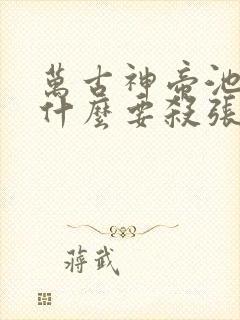 萬古神帝池
什麼要殺張
蔣武